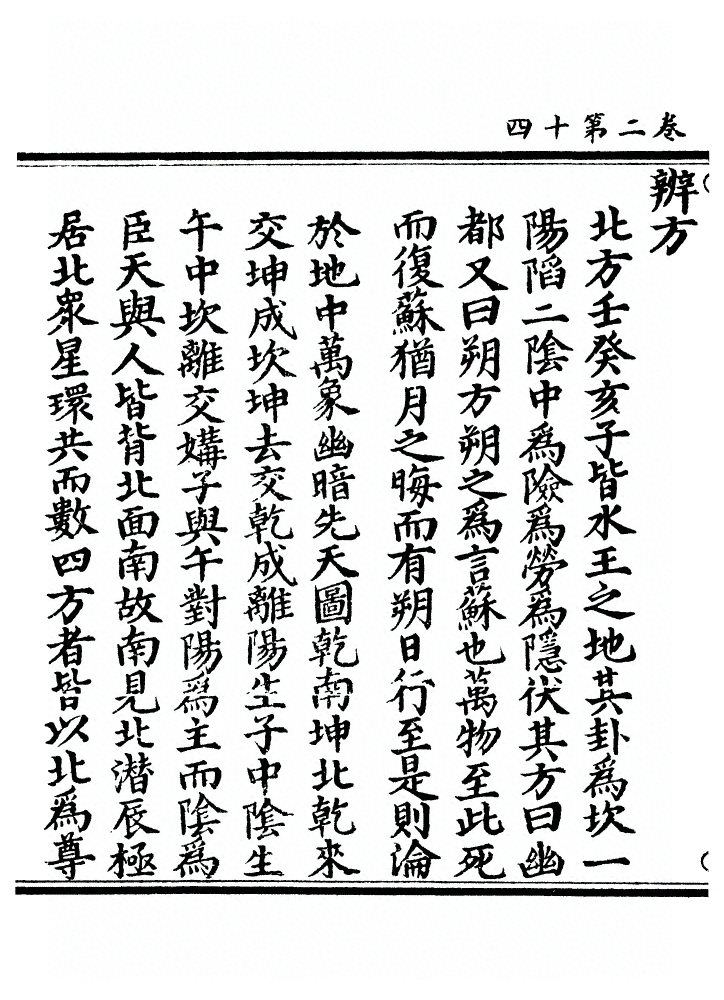 卷二第十四
辨方
北方壬癸亥子皆水王之地其卦爲坎一
陽陷二陰中爲險爲勞爲隱伏其方曰幽
都又曰朔方朔之爲言蘇也萬物至此死
而復蘇猶月之晦而有朔日行至是則淪
於地中萬象幽暗先天圖乾南坤北乾來
交坤成坎坤去交乾成離陽生子中陰生
午中坎離交媾子與午對陽爲主而陰爲
臣天與人皆背北面南故南見北潜辰極
居北衆星環共而數四方者皆以北爲尊